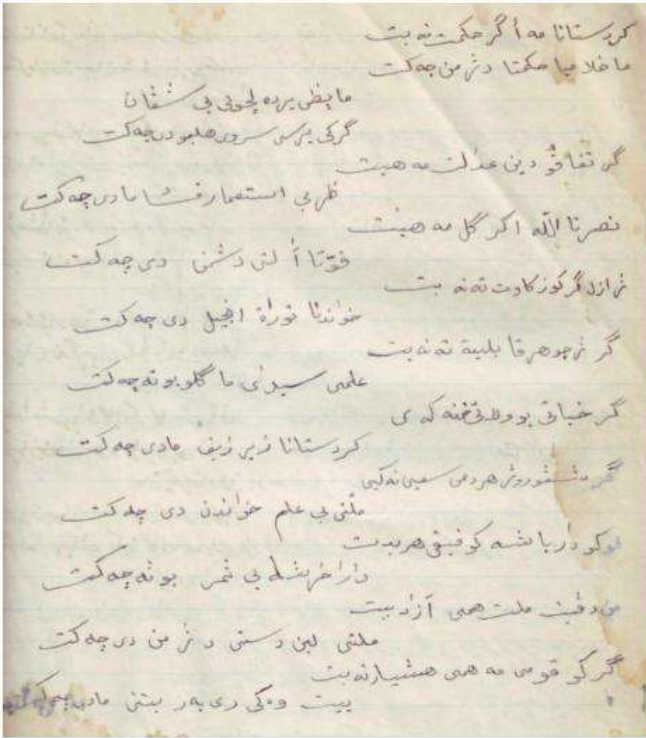 كردستانا مه أگر حكمت نه بت
ما خلا ميا حكمتا دژمن چه كت
ما ينظى پرده لجوبى بى شڤان
گركى پرسى سروى هلبو دى چه كت
گر تفاقو دين عدالت مه هبت
ظربى استعمار ما دى چه كت
نصرتا الله اكر گل مه هبت
قوّتا ألتى دشمن دى چه كت
ژ ازل گر كوز كاوت ته نه بت
خواندنا توراة انجيل دى چه كت
گر ژ جوهر قابلية ته نه بت
علمى سيداى ما گلو بو ته چه كت
گر خباتى بو ولاتى خنه كه ى
كردستانا زير زيف مادى چه كت
گر شڤو روژ هر دمى سعيى نه كى
ملتى بى علم خواندن دى چه كت
كو دار باشه كو فيقى هر بدت
دارا خرشه بى ثمر بو ته چه كت
من دڤيت ملت همى آزاد بيت
ملتى لبن دستى دژمن دى چه كت
گر كو قومى مه همى هشيار نه بت
بيت وەكى دى بەر بتنى مادى چه كت